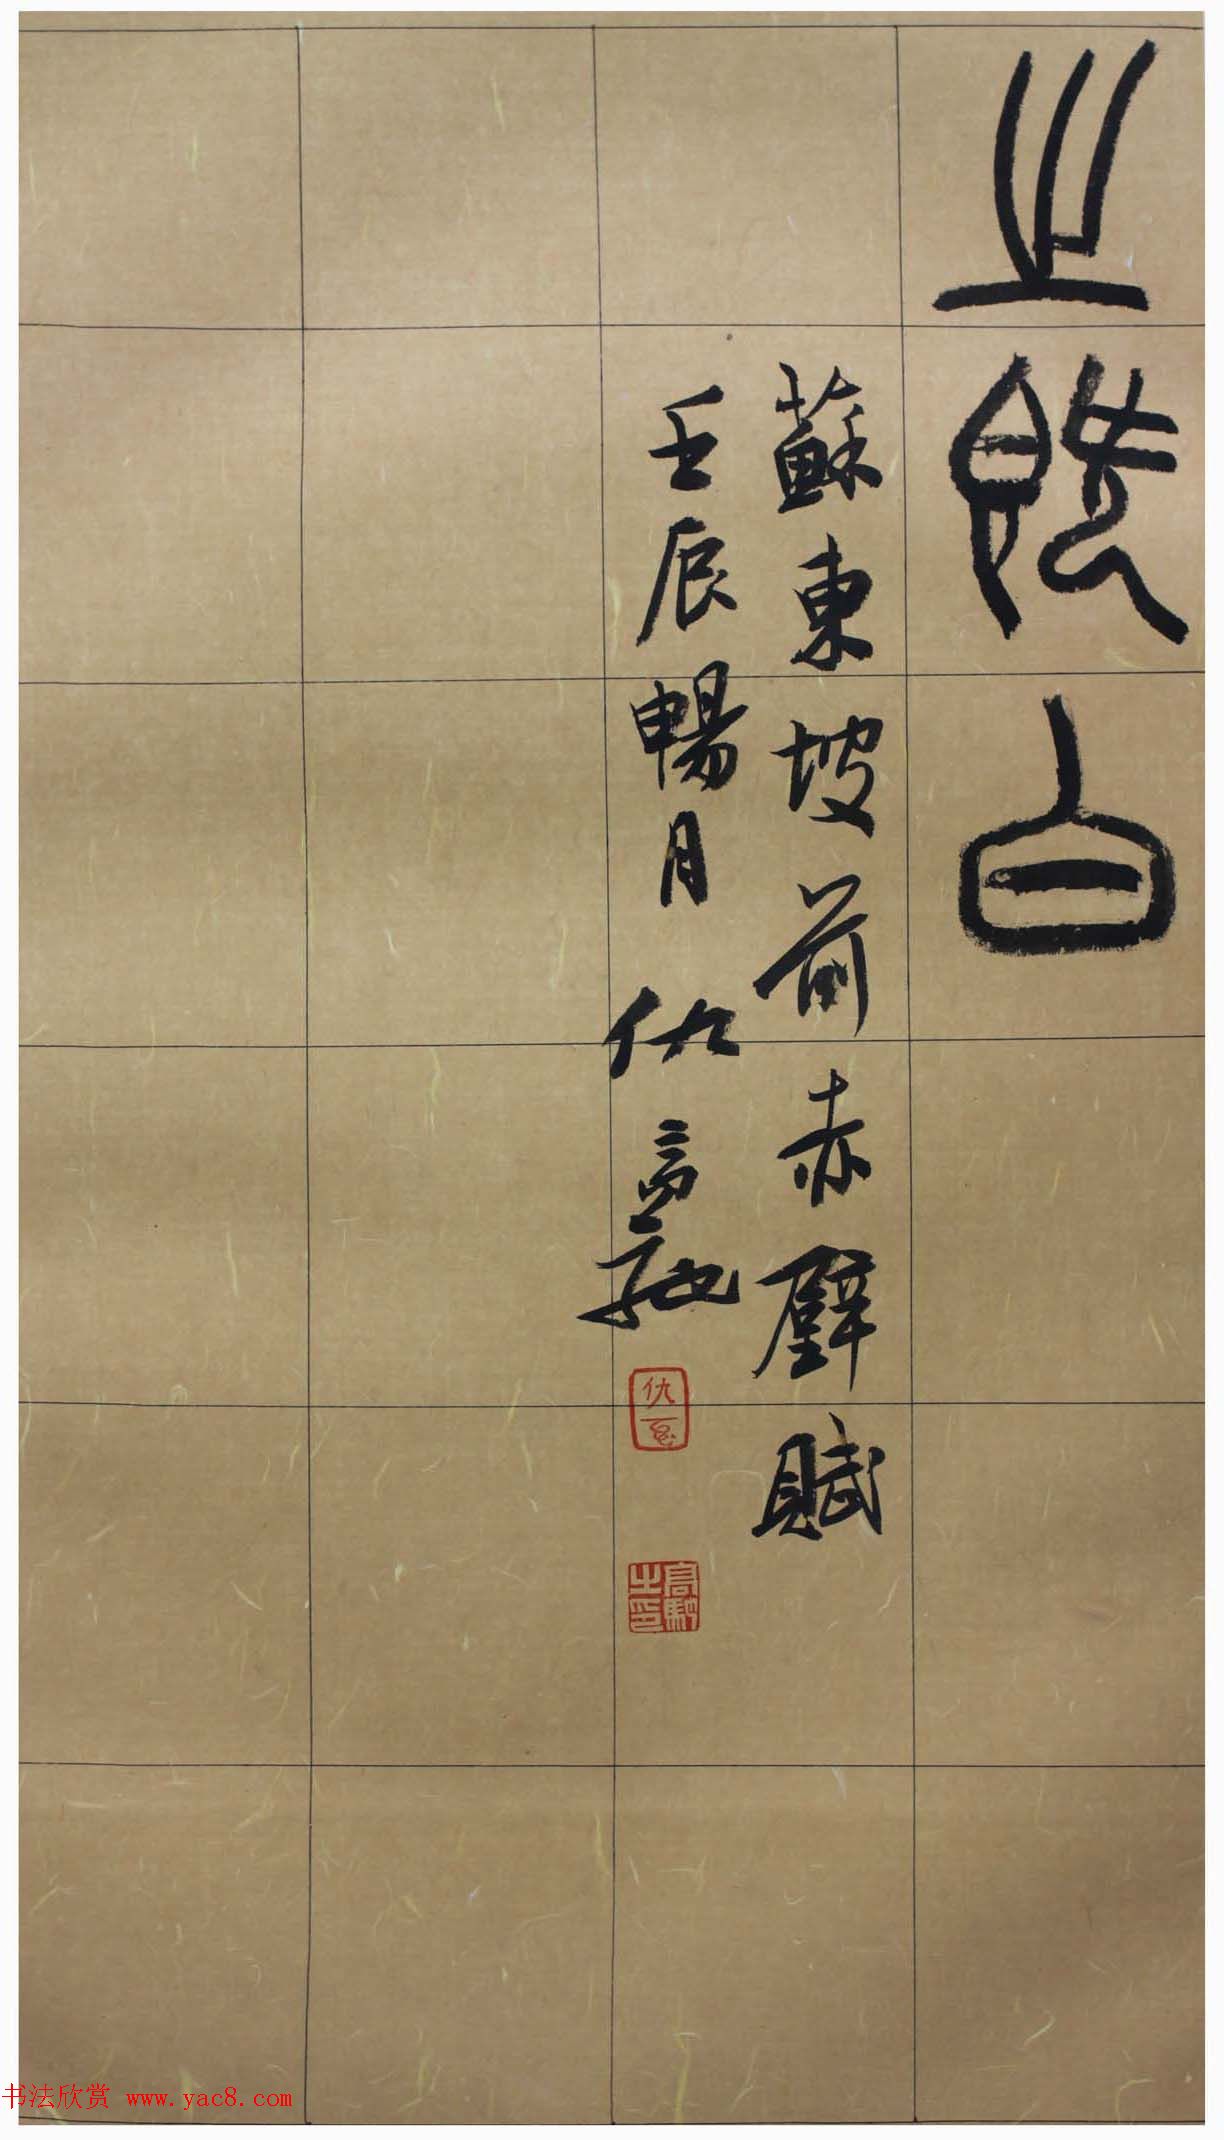 之既白
蘇東坡前赤壁賦
壬辰暢月 仇高馳
仇
高馳之印
书法欣赏 www.yac8.com